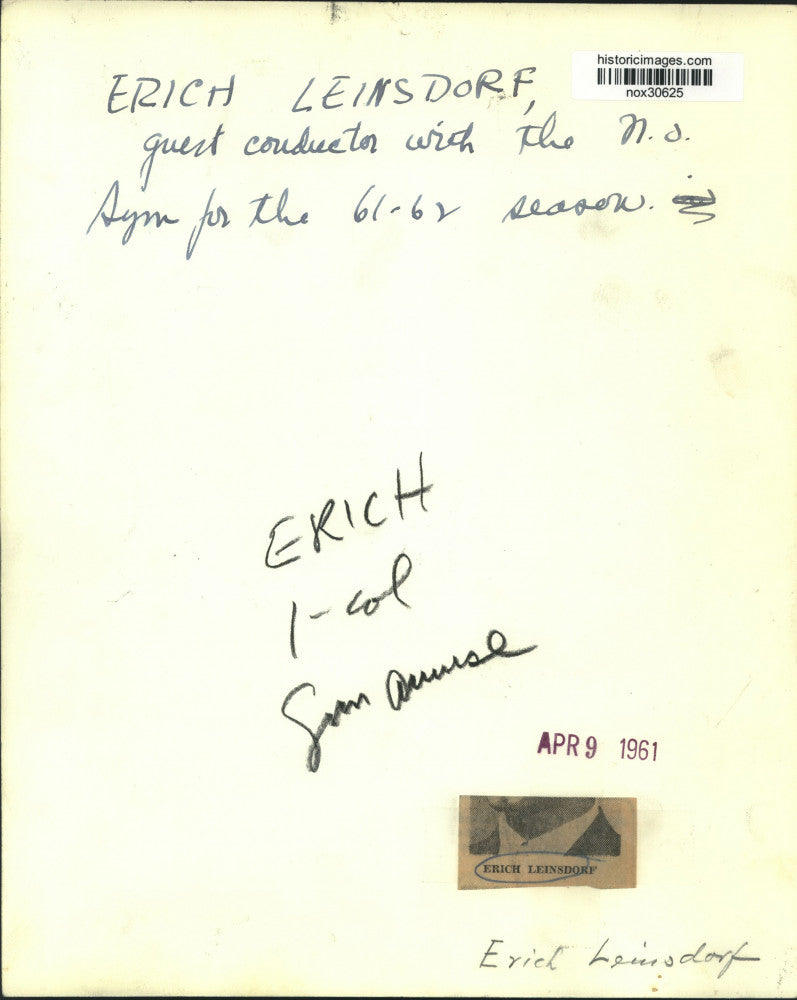 historicimages.com
nox30625
ERICH LEINSDORF,
guest conductor with the N.O.
Sym for the 61-62 season.
ERICH
1-col
Sun Amuse
APR 9 1961
ERICH LEINSDORF
Erich Leinsdorf